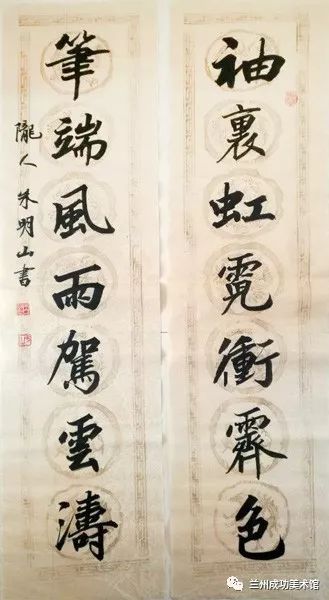 袖裏虹霓衝霽色
筆端風雨駕雲濤
隴人朱明山書
兰州成功美术馆